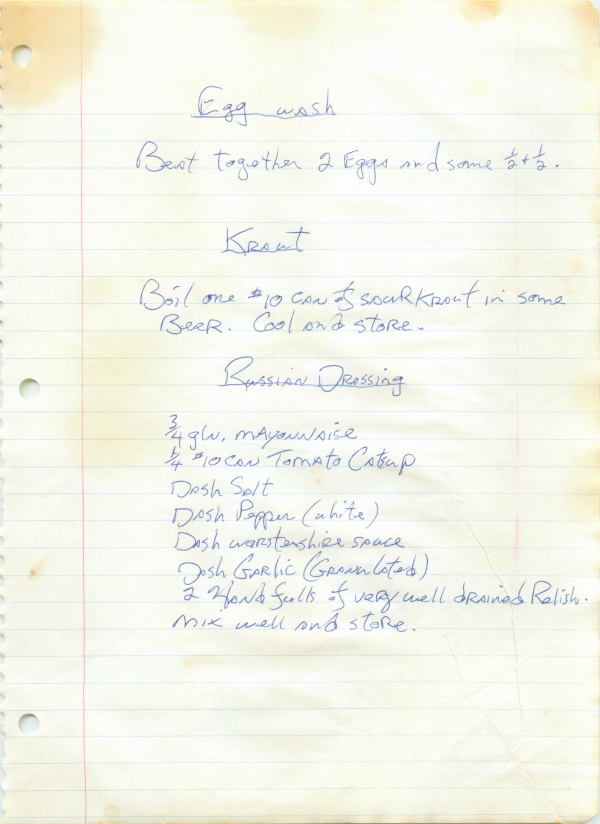 Egg wash
Beat together 2 Eggs and some 1/2 + 1/2.
Kraut
Boil one #10 can of sourkraut in some
Beer. Cool and store.
Russian Dressing
3/4 gln. mayonnaise
1/4 #10 can Tomato Catsup
Dash Salt
Dash Pepper (white)
Dash worstershire sauce
Dash Garlic (Granulated)
2 Handfulls of very well drained Relish.
mix well and store.